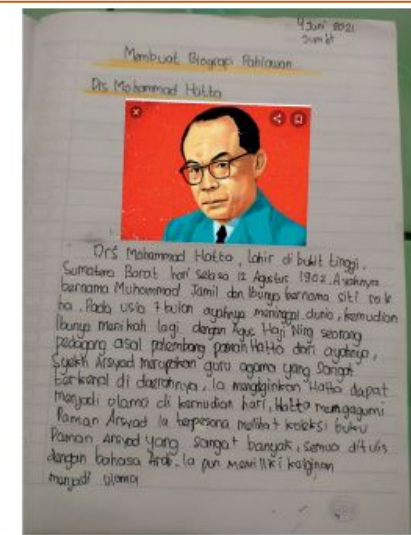 4 Juni 2021
Jum'at
Membuat Biograpi Pahlawan
Drs Mohammad Hatta
Drs Mohammad Hatta, lahir di bukit tinggi,
Sumatera Barat hari selasa 12 Agustus 1902. Ayahnya
bernama Muhammad Jamil dan Ibunya bernama siti sale
ha. Pada usia 7 bulan ayahnya meninggal dunia, kemudian
Ibunya menikah lagi dengan Agus Haji Ning seorang
pedagang asal palembang paman Hatta dari ayahnya,
Syekh Arsyad merupakan guru agama yang sangat
terkenal di daerahnya, Ia menginginkan Hatta dapat
menjadi ulama di kemudian hari, Hatta mengagumi
Paman Arsyad Ia terpesona melihat koleksi buku
Paman Arsyad yang sangat banyak, semua ditulis
dengan bahasa Arab. Ia pun memiliki keinginan
menjadi ulama